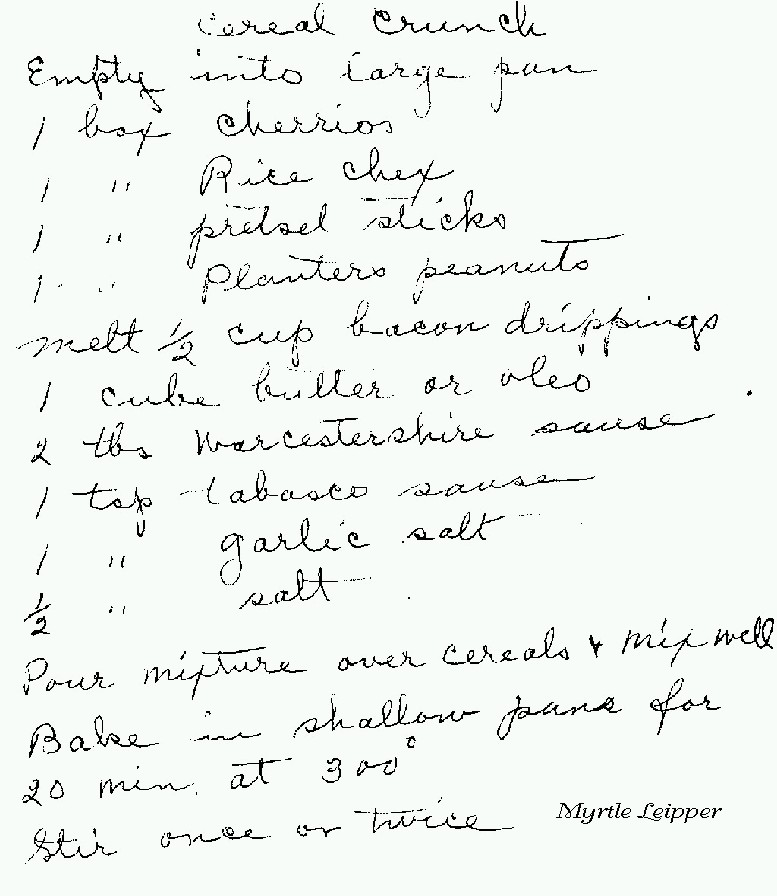 Cereal Crunch
Empty into large pan
1 box cherrios
1 " Rice chex
1 " pretsel sticks
1 " Planters peanuts
melt ½ cup bacon drippings
1 cube butter or oleo
2 tbs Worcestershire sause
1 tsp tabasco sause
1 " garlic salt
½ " salt
Pour mixture over cereals & mix well
Bake in shallow pans for
20 min. at 300°
Stir once or twice
Myrtle Leipper